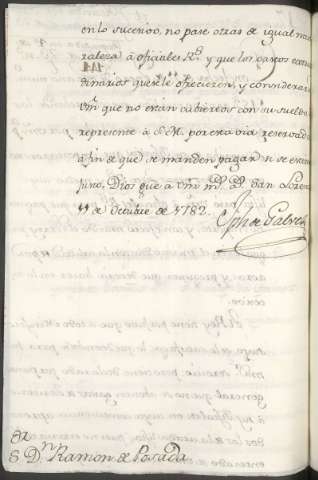 en lo sucesivo, no pase otras de igual natu
raleza à oficiales R.s y que los gastos extraor
dinarios que se le ofrecieren, y considerare
Vm que no están cubiertos con su sueldo,
represente à S.M. por esta via reservada
a fin de que se manden pagar si se
Dios gue à Vm m.s a.s San Loren
de Octubre de 1782.
Jph de Galvez
S.or D.n Ramon de Posada